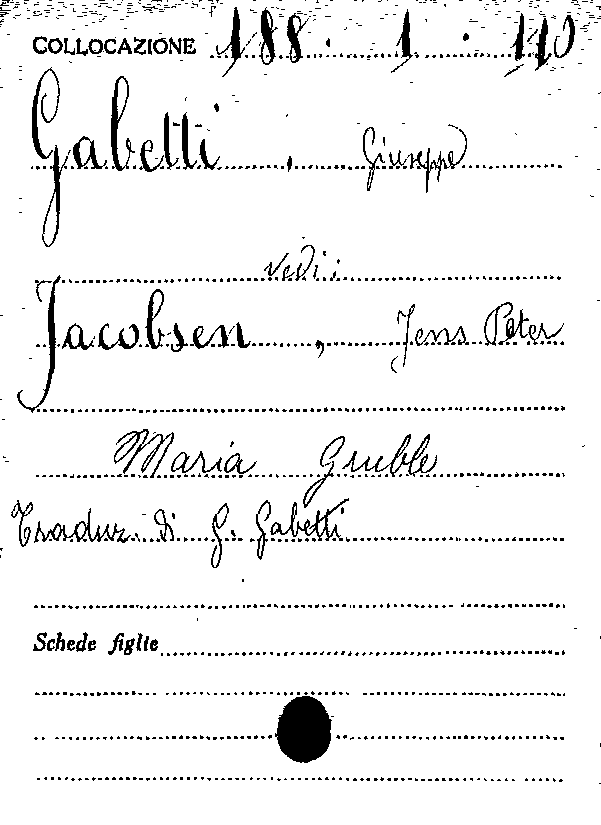 COLLOCAZIONE 188. 1. 110
Gabetti, Giuseppe
vedi:
Jacobsen, Jens Peter
Maria Grubbe
Traduz. di G. Gabetti
Schede figlie